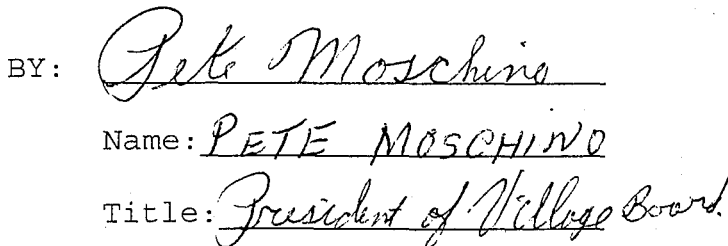 BY: Pete Moschino
Name: PETE MOSCHINO
Title: President of Village Board.